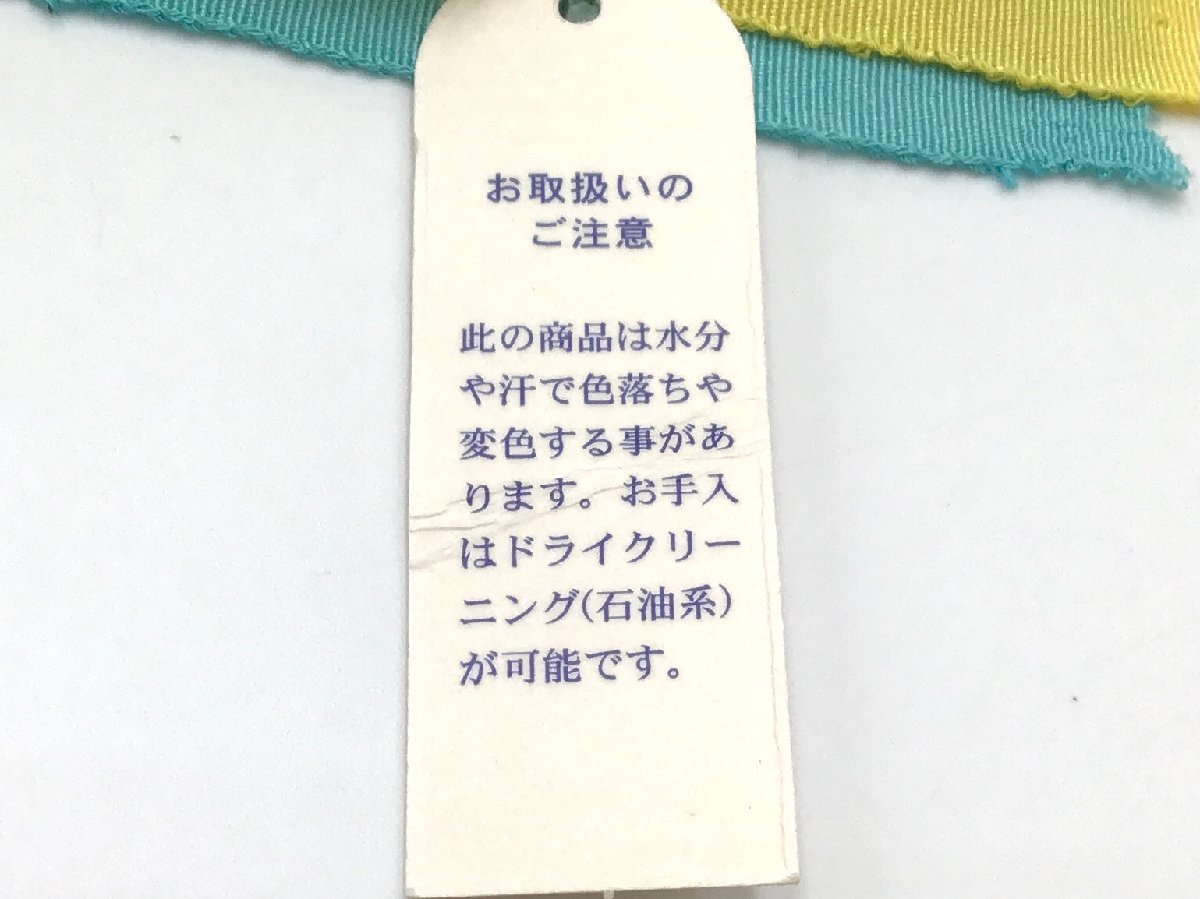 お取扱いの
ご注意
此の商品は水分
や汗で色落ちや
変色する事があ
ります。お手入
はドライクリー
ニング(石油系)
が可能です。